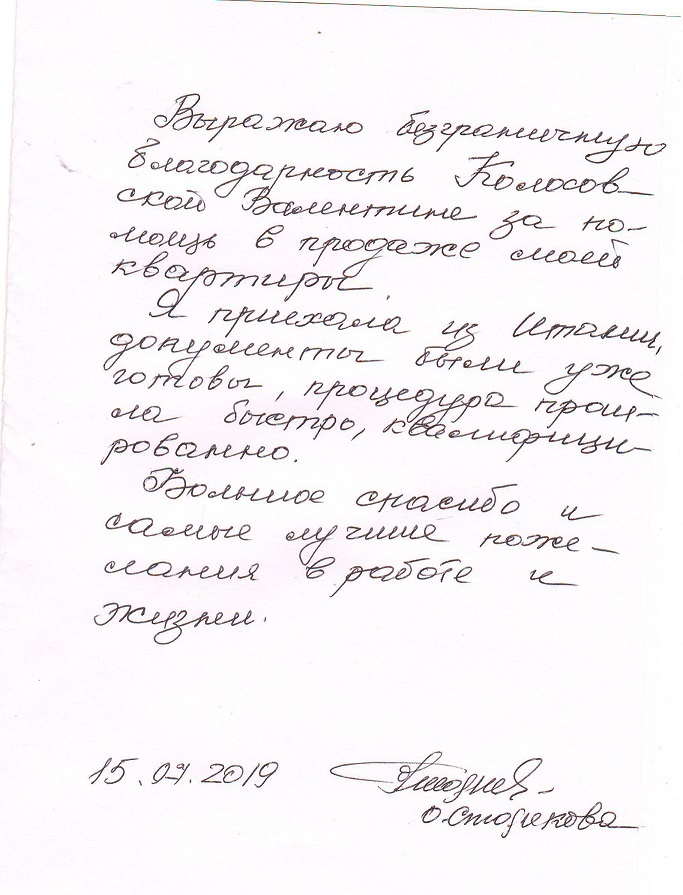 Выражаю безграничную
благодарность Колосов-
ской Валентине за по-
мощь в продаже моей
квартиры.
Я приехала из Италии,
документы были уже
готовы, процедура прош-
ла быстро, квалифици-
рованно.
Большое спасибо и
самые лучшие поже-
лания в работе и
жизни.
15.07.2019
О.